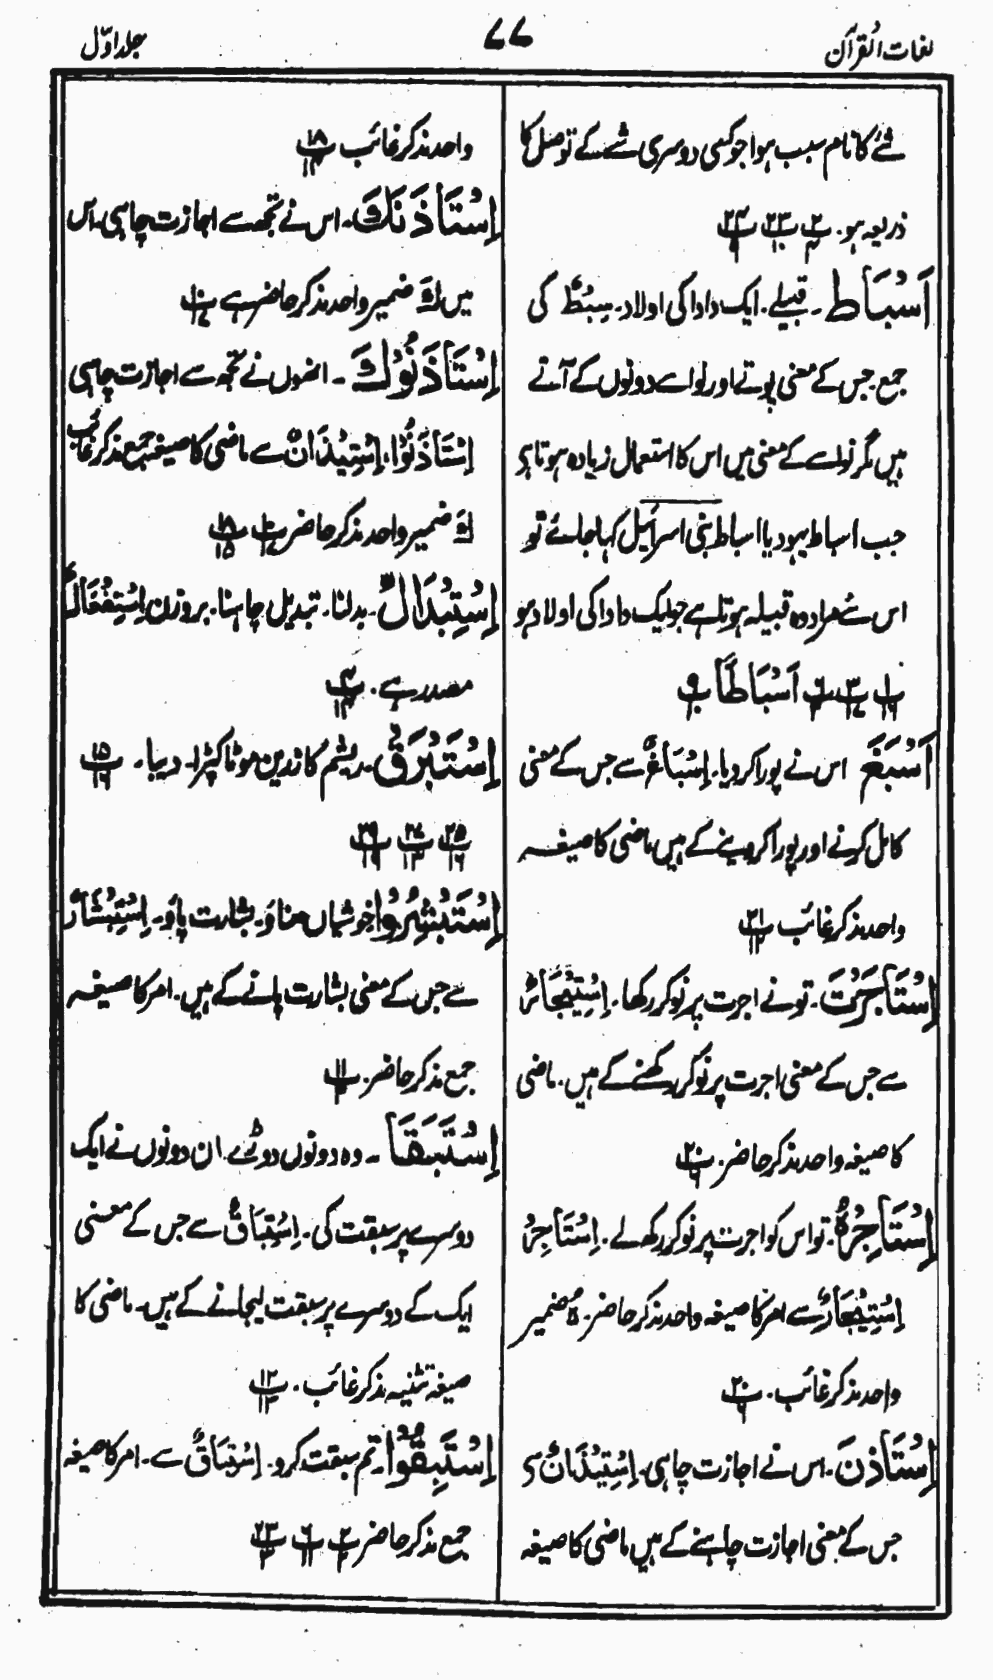 لغات القرآن
۷۷
جلد اوّل
شے کا نام سبب ہوا جو کسی دوسری شے کے توصل کا
ذریعہ ہو۔
اَسْبَاط۔ قبیلے۔ ایک دادا کی اولاد۔ سِبْطٌ کی
جمع۔ جس کے معنی پوتے اور نواسے دونوں کے آتے
ہیں مگر نواسے کے معنی میں اس کا استعمال زیادہ ہوتا ہے
جب اسباط یہود یا اسباط بنی اسرائیل کہا جائے تو
اس سے مراد وہ قبیلہ ہوتا ہے جو ایک دادا کی اولاد ہو
اَسْبَاطًا
اَسْبَغَ اس نے پورا کر دیا۔ اِسْبَاغٌ سے جس کے معنی
کامل کرنے اور پورا کر دینے کے ہیں ماضی کا صیغہ
واحد مذکر غائب
اِسْتَأْجَرْتَ۔ تو نے اجرت پر نوکر رکھا۔ اِسْتِیْجَارٌ
سے جس کے معنی اجرت پر نوکر رکھنے کے ہیں۔ ماضی
کا صیغہ واحد مذکر حاضر۔
اِسْتَأْجِرْہُ۔ تو اس کو اجرت پر نوکر رکھ لے۔ اِسْتَاجِرْ
اِسْتِیْجَارٌ سے امر کا صیغہ واحد مذکر حاضر۔ ہُ ضمیر
واحد مذکر غائب۔
اِسْتَأْذَنَ۔ اس نے اجازت چاہی۔ اِسْتِیْذَانٌ سے
جس کے معنی اجازت چاہنے کے ہیں ماضی کا صیغہ
واحد مذکر غائب
اِسْتَأْذَنَكَ۔ اس نے تجھ سے اجازت چاہی۔ اس
میں كَ ضمیر واحد مذکر حاضر ہے
اِسْتَأْذَنُوْكَ۔ انھوں نے تجھ سے اجازت چاہی
اِسْتَأْذَنُوْا۔ اِسْتِیْذَانٌ سے ماضی کا صیغہ جمع مذکر غائب
كَ ضمیر واحد مذکر حاضر
اِسْتِبْدَالٌ۔ بدلنا۔ تبدیل چاہنا۔ بروزن اِسْتِفْعَالٌ
مصدر ہے۔
اِسْتَبْرَقٌ۔ ریشم کا زرین موٹا کپڑا۔ دیبا۔
اِسْتَبْشِرُوْا خوشیاں مناؤ۔ بشارت پاؤ۔ اِسْتِبْشَارٌ
سے جس کے معنی بشارت پانے کے ہیں۔ امر کا صیغہ
جمع مذکر حاضر۔
اِسْتَبَقَا۔ وہ دونوں دوڑے۔ ان دونوں نے ایک
دوسرے پر سبقت کی۔ اِسْتِبَاقٌ سے جس کے معنی
ایک کے دوسرے پر سبقت لیجانے کے ہیں۔ ماضی کا
صیغہ تثنیہ مذکر غائب۔
اِسْتَبِقُوْا۔ تم سبقت کرو۔ اِسْتِبَاقٌ سے۔ امر کا صیغہ
جمع مذکر حاضر